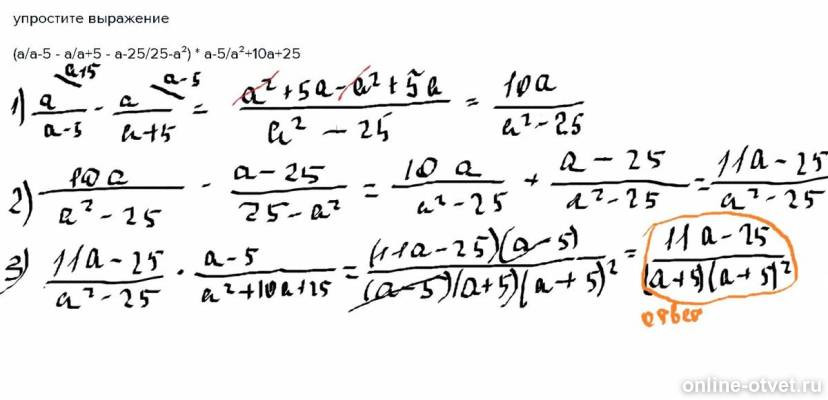 упростите выражение
(a/a-5 - a/a+5 - a-25/25-a²) * a-5/a²+10a+25
1) a/(a-5) ^a+5 - a/(a+5) ^a-5 = (a²+5a-a²+5a)/(a²-25) = 10a/(a²-25)
2) 10a/(a²-25) - (a-25)/(25-a²) = 10a/(a²-25) + (a-25)/(a²-25) = (11a-25)/(a²-25)
3) (11a-25)/(a²-25) · (a-5)/(a²+10a+25) = (11a-25)(a-5)/((a-5)(a+5)(a+5)²) = (11a-25)/((a+5)(a+5)²)
ответ
online-otvet.ru